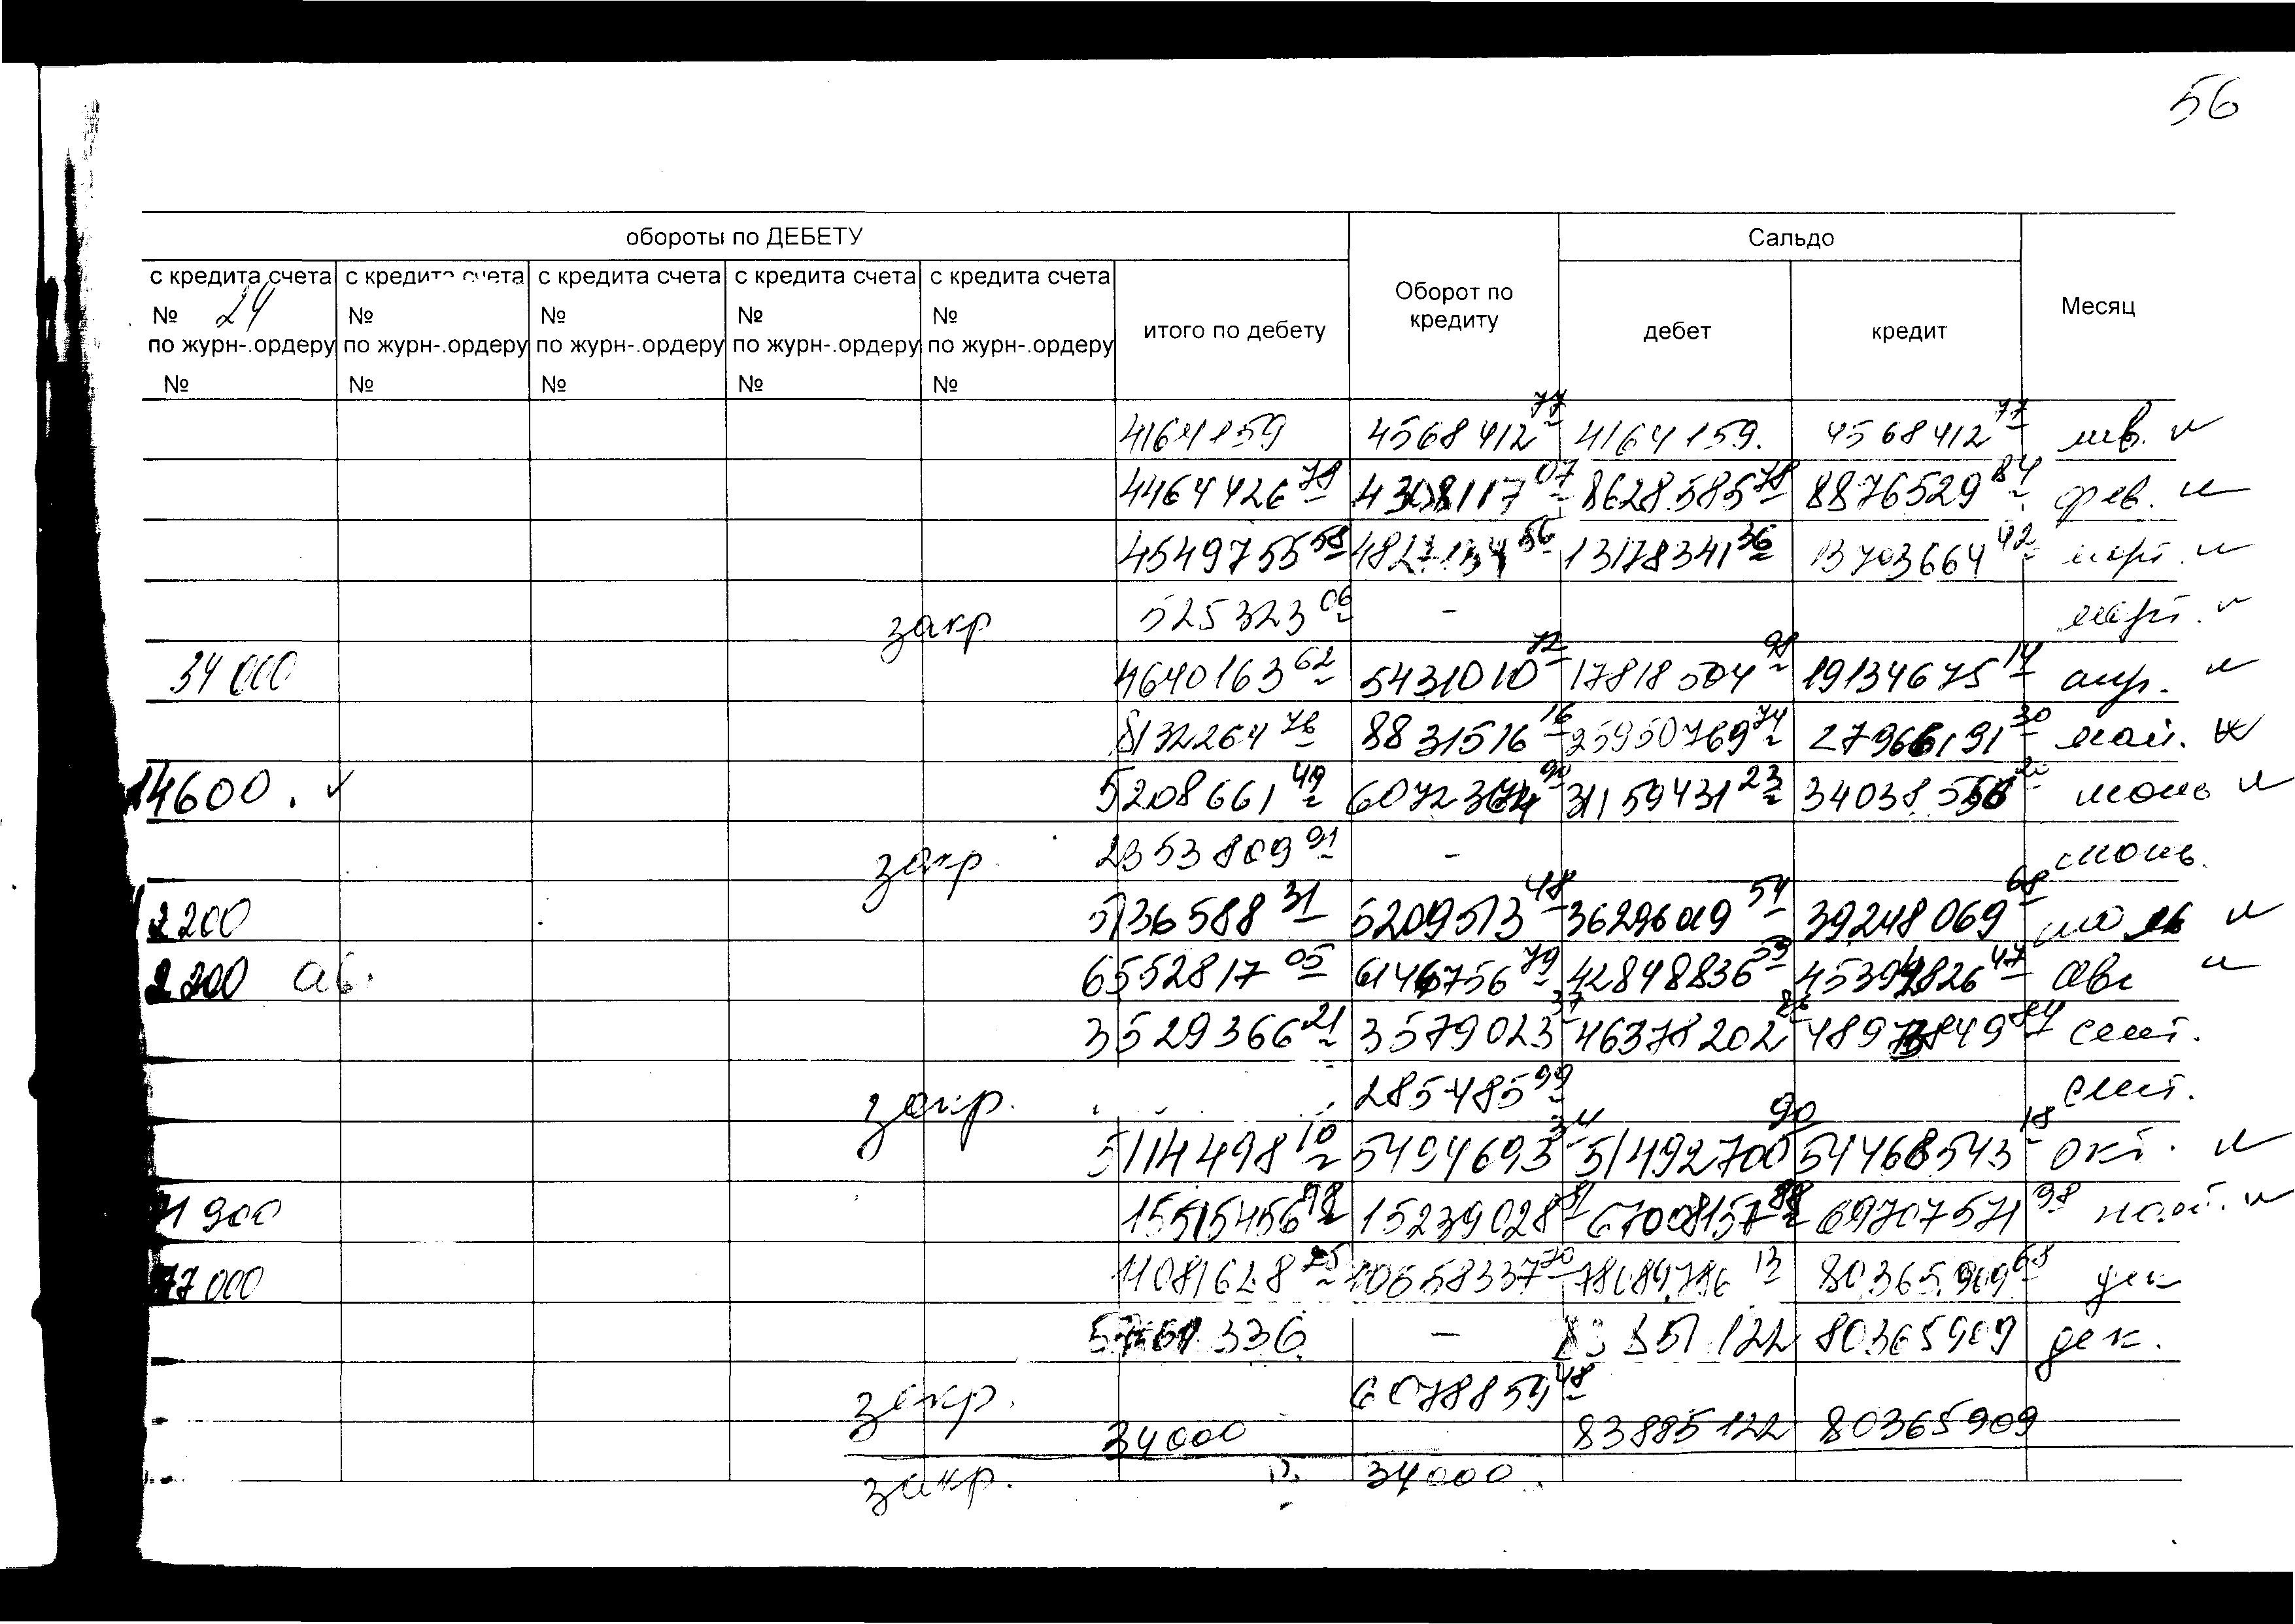 56
обороты по ДЕБЕТУ Сальдо
с кредита счета с кредита счета с кредита счета с кредита счета с кредита счета
№ 24 № № № №
по журн-.ордеру по журн-.ордеру по журн-.ордеру по журн-.ордеру по журн-.ордеру
№ № № № №
итого по дебету Оборот по кредиту дебет кредит Месяц
4164159 4568412 77 4164159. 4568412 77 янв.
4464426 78 4308117 07 8628585 78 8876529 84 фев.
4549755 58 4827134 56 13178341 36 13703664 42 март.
закр 525323 06 - март.
34 000 4640163 62 5431010 72 17818504 98 19134675 14 апр.
8132264 76 8831516 16 25950769 74 27966191 30 май.
14600. 5208661 49 6072364 90 31159431 23 34038556 20 июнь
закр. 2353809 91 - июнь.
2200 5136588 31 5209513 48 36296019 54 39248069 68 июль
2200 аб. 6552817 05 6146756 79 42848836 59 45394826 47 авг
3529366 21 3579023 37 46378202 86 48973849 84 сент.
закр. 285485 99 сент.
5114498 10 5494693 34 51492700 90 54468543 18 окт.
900 15515456 98 15239028 81 67008157 88 69707571 98 нояб.
77000 11081628 25 10658337 70 78089786 13 80365909 68 дек
336 - 122 80365909 дек.
закр. 6078859 48
34000 83885122 80365909
закр. 34000.